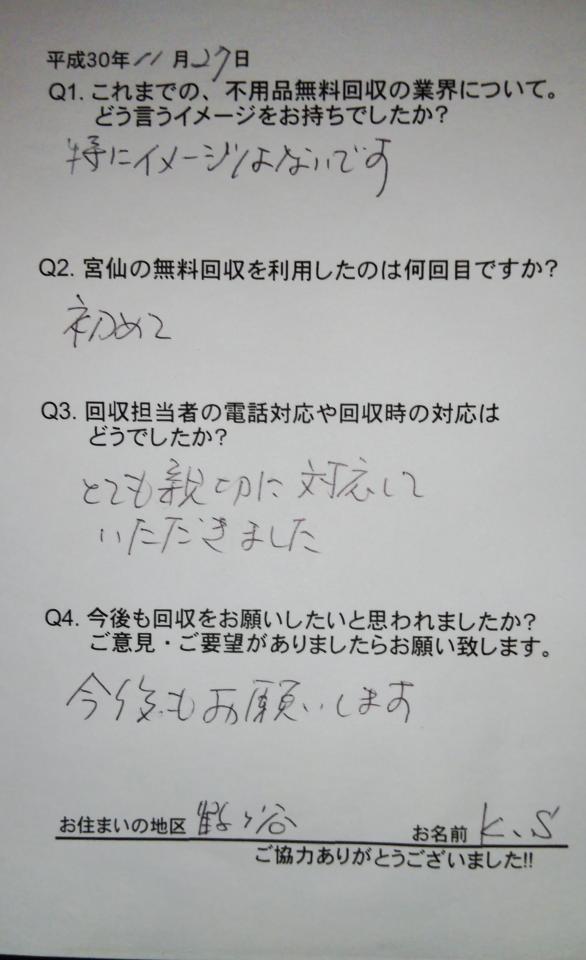 平成30年11月27日
Q1. これまでの、不用品無料回収の業界について。
どう言うイメージをお持ちでしたか?
特にイメージはないです
Q2. 宮仙の無料回収を利用したのは何回目ですか?
初めて
Q3. 回収担当者の電話対応や回収時の対応は
どうでしたか?
とても親切に対応して
いただきました
Q4. 今後も回収をお願いしたいと思われましたか?
ご意見・ご要望がありましたらお願い致します。
今後もお願いします
お住まいの地区 鶴ヶ谷 お名前 K.S
ご協力ありがとうございました!!